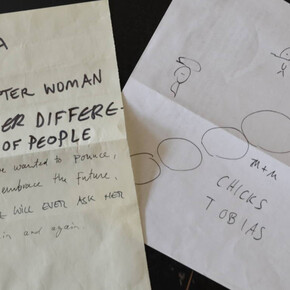 A
TER WOMAN
ER DIFFERE-
OF PEOPLE
wanted to pounce,
embrace the future.
E WILL EVER ASK HER
in and again
M+M
CHICKS
TOBIAS